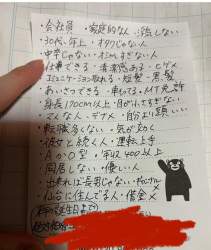 ・会社員 ・家庭的な人 ・浮気しない
・30代、年上 ・オタクじゃない人
・中卒じゃない・ 
・仕事できる ・清潔感ある ・ヒゲ×
・コミュニケーション取れる ・短髪 ・黒髪
・あいさつできる ・車もってる ・バイク免許
・身長170cm以上 ・目が
・マメな人 ・デブ× ・自分より頭いい
・転職多くない ・気が効く
・彼女と続く人 ・運転上手
・A か O 型 ・年収400以上
・同居しない ・優しい人
・出来れば長男じゃない ・ギャンブル×
・仙台に住んでる人 ・借金×